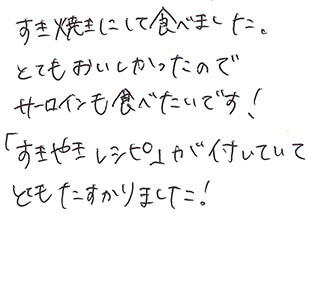 すき焼きにして食べました。
とてもおいしかったので
サーロインも食べたいです!
「すきやきレシピ」が付いていて
とてもたすかりました!